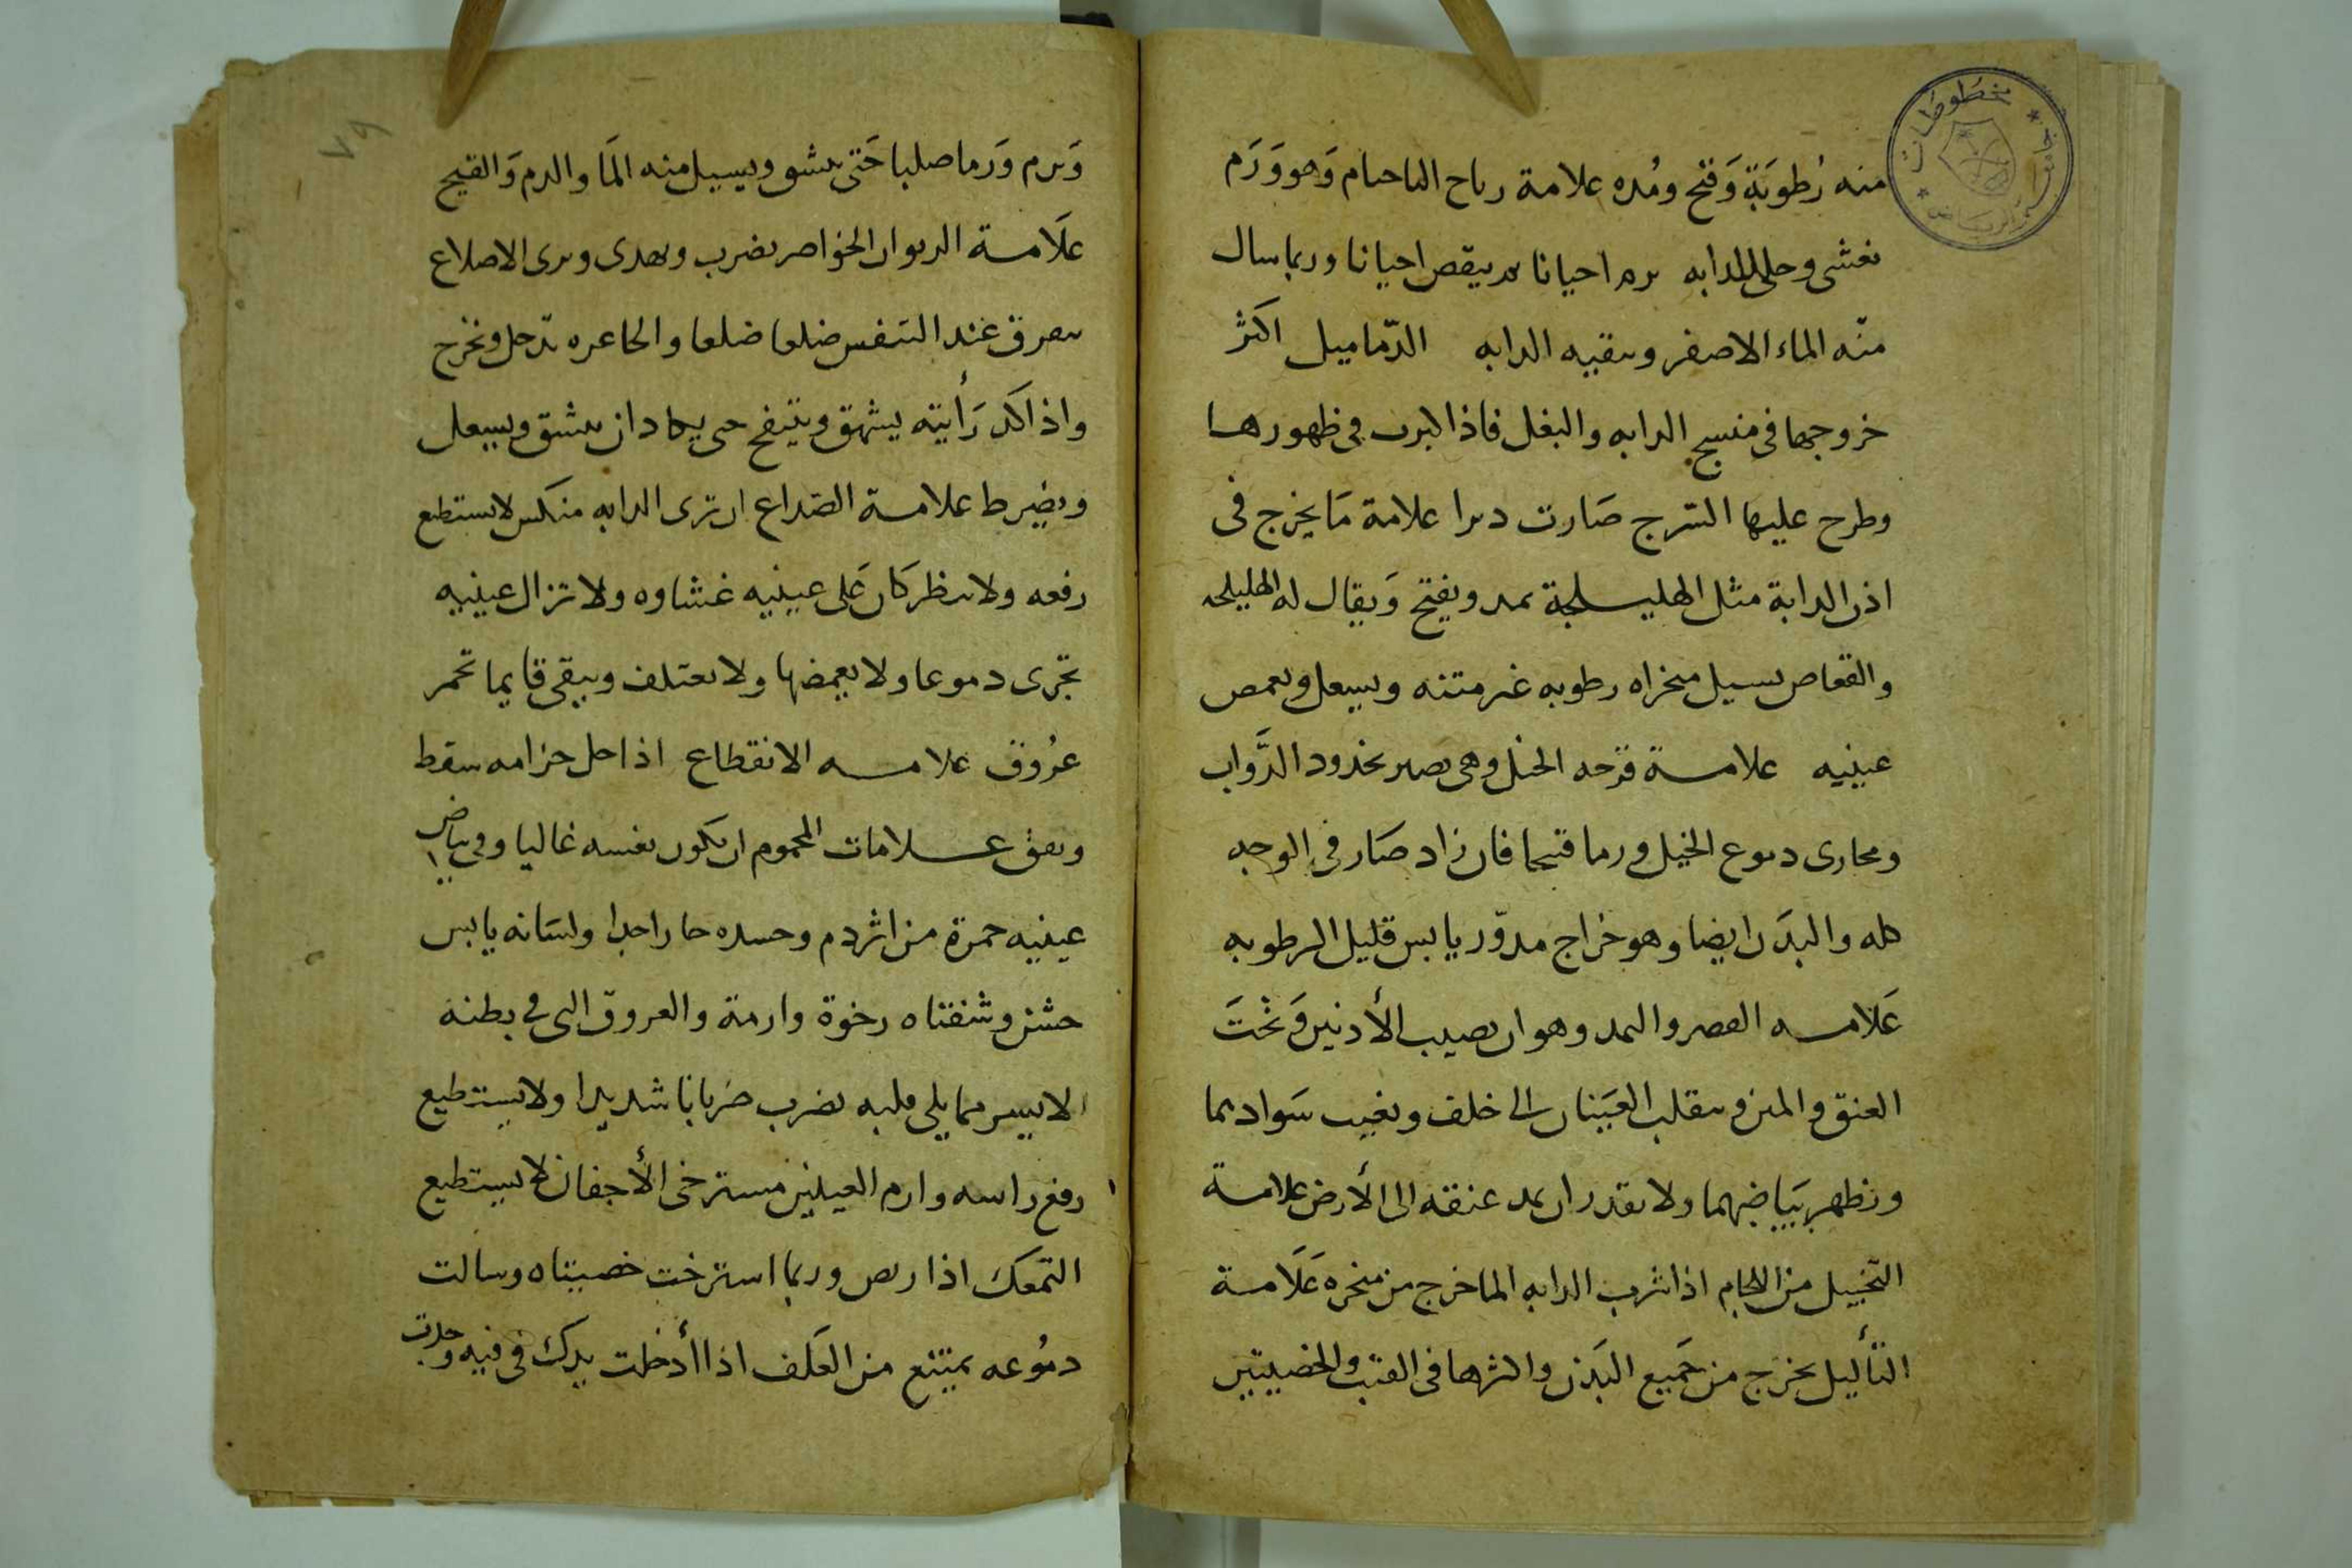 منه رُطوبَة وَقيح ومُده علامة رياح الناحيام وَهو وَرَم
يغشى وحلى للدابه يرم احيانا ثم ينقص احيانا وربما سال
منه الماء الاصفر وينقيه الدابه الدّماميل اكثر
خروجها في منسج الدابه والبغل فاذا كبرت في ظهورها
وطرح عليها السَرج صَارت دبرا علامة مَا يخرج في
اذن الدابة مثل الهليلجة يمد ويفتح وَيقال له الهليلجه
والقعاص يسيل منخراه رطوبه غير منتنه ويسعل ويغمض
عينيه علامة قرحه الخيل وهي تصير بخدود الدَّواب
ومجارى دموع الخيل ورما قيحا فان زاد صَار في الوجه
كله والبدَن ايضا وهو خراج مدوّر يابس قليل الرطوبه
عَلامه العصر والمد وهو ان يصيب الأذنين وَتحتَ
العنق والمتن وينقلب العَينان الى خلف ويغيب سَوادهما
ويظهر بَيَاضهما ولا يقدر ان يمد عنقه الى الأرض علامة
التخييل من اللجام اذا شرب الدابه الما خرج من منخره عَلَامة
الثأليل يخرج من جَميع البَدَن واكثرها في القنب والخصيتين
٧٩
وَيرم وَرما صلبا حَتى ينشق ويسيل منه المَا والدم وَالقيح
علَامة الربو ان الخواصر تضرب وتهدى وترى الاضلاع
تتفرق عند التنفس ضلعا ضلعا والجاعره تدخل وتخرج
واذا اكد رَأيته يشهق وينتفخ حتى يكاد ان ينشق ويسعل
ويضرط علامة الصداع ان ترى الدابه منكس لا يستطيع
رفعه ولا ينظر كان عَلى عينيه غشاوه ولا تزال عينيه
تجرى دموعا ولا يغمضها ولا يعتلف ويبقى قايما تحمر
عُروق علامه الانقطاع اذا حل حزامه سقط
ونفق علامات المحموم ان يكون نفسه غاليا وفي بياض
عينيه حمرة من اثر دم وجسده حارا جدا ولسَانه يابس
خشن وشفتاه رخوة وارمة والعروق التى في بطنه
الايسر مما يلي قلبه تضرب ضربانا شديدا ولا يستطيع
رفع راسه وارم العينين مسترخى الأجفان لا يستطيع
التمعك اذا ربض وربما استرخت خصيتاه وسالت
دمُوعه يمتنع من العَلف اذا أدخلت يدك في فيه وجدت